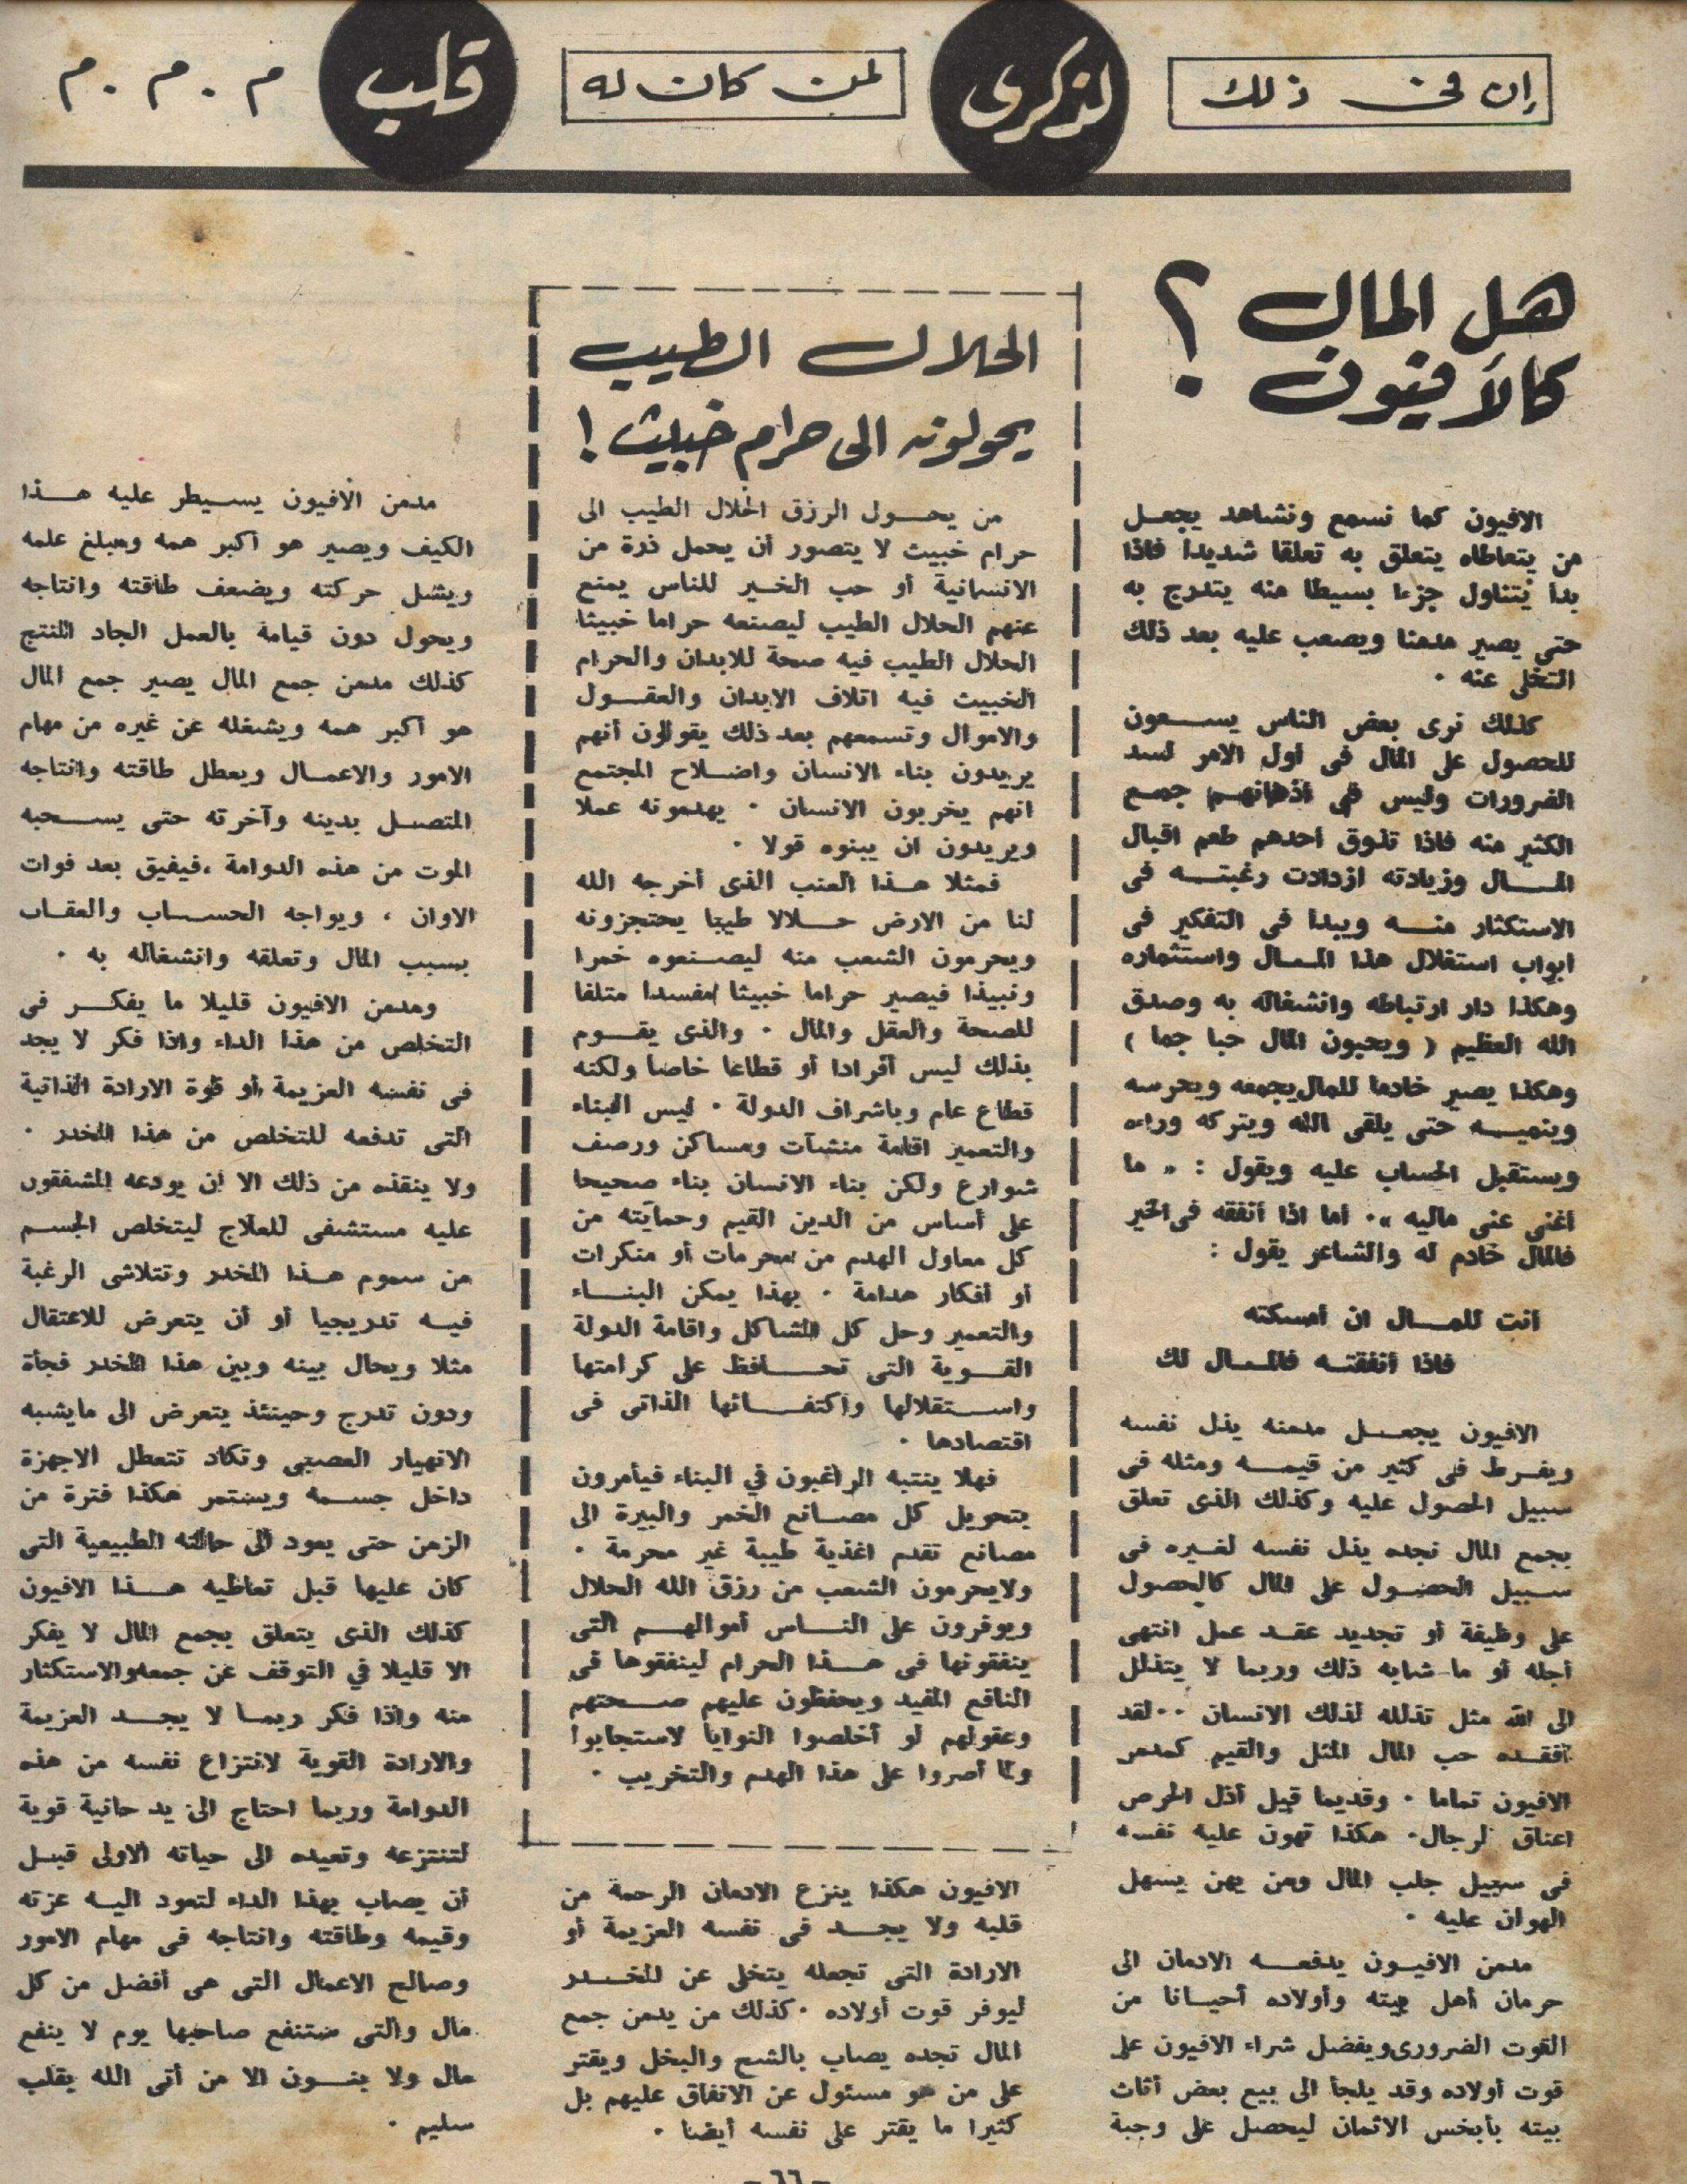 إن في ذلك لذكرى لمن كان له قلب م . م . م
هل المال
كالأفيون ؟
الافيون كما نسمع ونشاهد يجعل
من يتعاطاه يتعلق به تعلقا شديدا فاذا
بدأ يتناول جزءا بسيطا منه يتدرج به
حتى يصير مدمنا ويصعب عليه بعد ذلك
التخلى عنه ٠
كذلك نرى بعض الناس يسعون
للحصول على المال فى أول الامر لسد
الضرورات وليس فى أذهانهم جمع
الكثير منه فاذا تذوق احدهم طعم اقبال
المال وزيادته ازدادت رغبته فى
الاستكثار منه ويبدا فى التفكير فى
ابواب استغلال هذا المال واستثماره
وهكذا دار ارتباطه وانشغاله به وصدق
الله العظيم ( ويحبون المال حبا جما )
وهكذا يصير خادما للمال يجمعه ويحرسه
وينميه حتى يلقى الله ويتركه وراءه
ويستقبل الحساب عليه ويقول : « ما
أغنى عنى ماليه »٠ أما اذا أنفقه فى الخير
فالمال خادم له والشاعر يقول :
أنت للمال ان أمسكته
فاذا أنفقته فالمال لك
الافيون يجعل مدمنه يذل نفسه
ويفرط فى كثير من قيمه ومثله فى
سبيل الحصول عليه وكذلك الذى تعلق
بجمع المال نجده يذل نفسه لغيره فى
سبيل الحصول على المال كالحصول
على وظيفة أو تجديد عقد عمل انتهى
أجله أو ما شابه ذلك وربما لا يتذلل
الى الله مثل تذلله لذلك الانسان ٠٠ لقد
أفقده حب المال المثل والقيم كمدمن
الافيون تماما ٠ وقديما قيل أذل الحرص
اعناق الرجال٠ هكذا تهون عليه نفسه
فى سبيل جلب المال ومن يهن يسهل
الهوان عليه ٠
مدمن الافيون يدفعه الادمان الى
حرمان أهل بيته وأولاده أحيانا من
القوت الضرورى ويفضل شراء الافيون على
قوت أولاده وقد يلجأ الى بيع بعض أثاث
بيته بأبخس الاثمان ليحصل على وجبة
الحلال الطيب
يحولونه الى حرام خبيث !
من يحول الرزق الحلال الطيب الى
حرام خبيث لا يتصور أن يحمل ذرة من
الانسانية أو حب الخير للناس يمنع
عنهم الحلال الطيب ليصنعه حراما خبيثا
الحلال الطيب فيه صحة للابدان والحرام
الخبيث فيه اتلاف الابدان والعقول
والاموال وتسمعهم بعد ذلك يقولون أنهم
يريدون بناء الانسان واصلاح المجتمع
انهم يخربون الانسان ٠ يهدمونه عملا
ويريدون ان يبنوه قولا ٠
فمثلا هذا العنب الذى أخرجه الله
لنا من الارض حلالا طيبا يحتجزونه
ويحرمون الشعب منه ليصنعوه خمرا
ونبيذا فيصير حراما خبيثا مفسدا متلفا
للصحة والعقل والمال ٠ والذى يقوم
بذلك ليس أفرادا أو قطاعا خاصا ولكنه
قطاع عام وباشراف الدولة ٠ ليس البناء
والتعمير اقامة منشآت ومساكن ورصف
شوارع ولكن بناء الانسان بناء صحيحا
على أساس من الدين القيم وحمايته من
كل معاول الهدم من محرمات أو منكرات
أو أفكار هدامة ٠ بهذا يمكن البناء
والتعمير وحل كل المشاكل واقامة الدولة
القوية التى تحافظ على كرامتها
واستقلالها واكتفائها الذاتى فى
اقتصادها ٠
فهلا ينتبه الراغبون في البناء فيأمرون
بتحويل كل مصانع الخمر والبيرة الى
مصانع تقدم اغذية طيبة غير محرمة ٠
ولايحرمون الشعب من رزق الله الحلال
ويوفرون على الناس أموالهم التى
ينفقونها فى هذا الحرام لينفقوها فى
النافع المفيد ويحفظون عليهم صحتهم
وعقولهم لو أخلصوا النوايا لاستجابوا
ولما أصروا على هذا الهدم والتخريب ٠
الافيون هكذا ينزع الادمان الرحمة من
قلبه ولا يجد فى نفسه العزيمة أو
الارادة التى تجعله يتخلى عن المخدر
ليوفر قوت أولاده ٠ كذلك من يدمن جمع
المال تجده يصاب بالشح والبخل ويقتر
على من هو مسئول عن الانفاق عليهم بل
كثيرا ما يقتر على نفسه أيضا ٠
مدمن الافيون يسيطر عليه هذا
الكيف ويصير هو أكبر همه ومبلغ علمه
ويشل حركته ويضعف طاقته وانتاجه
ويحول دون قيامة بالعمل الجاد المنتج
كذلك مدمن جمع المال يصير جمع المال
هو أكبر همه ويشغله عن غيره من مهام
الامور والاعمال ويعطل طاقته وانتاجه
المتصل بدينه وآخرته حتى يسحبه
الموت من هذه الدوامة ،فيفيق بعد فوات
الاوان ، ويواجه الحساب والعقاب
بسبب المال وتعلقه وانشغاله به ٠
ومدمن الافيون قليلا ما يفكر فى
التخلص من هذا الداء واذا فكر لا يجد
فى نفسه العزيمة أو قوة الارادة الذاتية
التى تدفعه للتخلص من هذا المخدر ٠
ولا ينقذه من ذلك الا أن يودعه المشفقون
عليه مستشفى للعلاج ليتخلص الجسم
من سموم هذا المخدر وتتلاشى الرغبة
فيه تدريجيا أو أن يتعرض للاعتقال
مثلا ويحال بينه وبين هذا المخدر فجأة
ودون تدرج وحينئذ يتعرض الى مايشبه
الانهيار العصبى وتكاد تتعطل الاجهزة
داخل جسمه ويستمر هكذا فترة من
الزمن حتى يعود الى حالته الطبيعية التى
كان عليها قبل تعاطيه هذا الافيون
كذلك الذى يتعلق بجمع المال لا يفكر
الا قليلا في التوقف عن جمعه والاستكثار
منه واذا فكر ربما لا يجد العزيمة
والارادة القوية لانتزاع نفسه من هذه
الدوامة وربما احتاج الى يد حانية قوية
لتنتزعه وتعيده الى حياته الاولى قبل
أن يصاب بهذا الداء لتعود اليه عزته
وقيمه وطاقته وانتاجه فى مهام الامور
وصالح الاعمال التى هى أفضل من كل
مال والتى ستنفع صاحبها يوم لا ينفع
مال ولا بنون الا من أتى الله بقلب
سليم ٠
- ٦٦ -